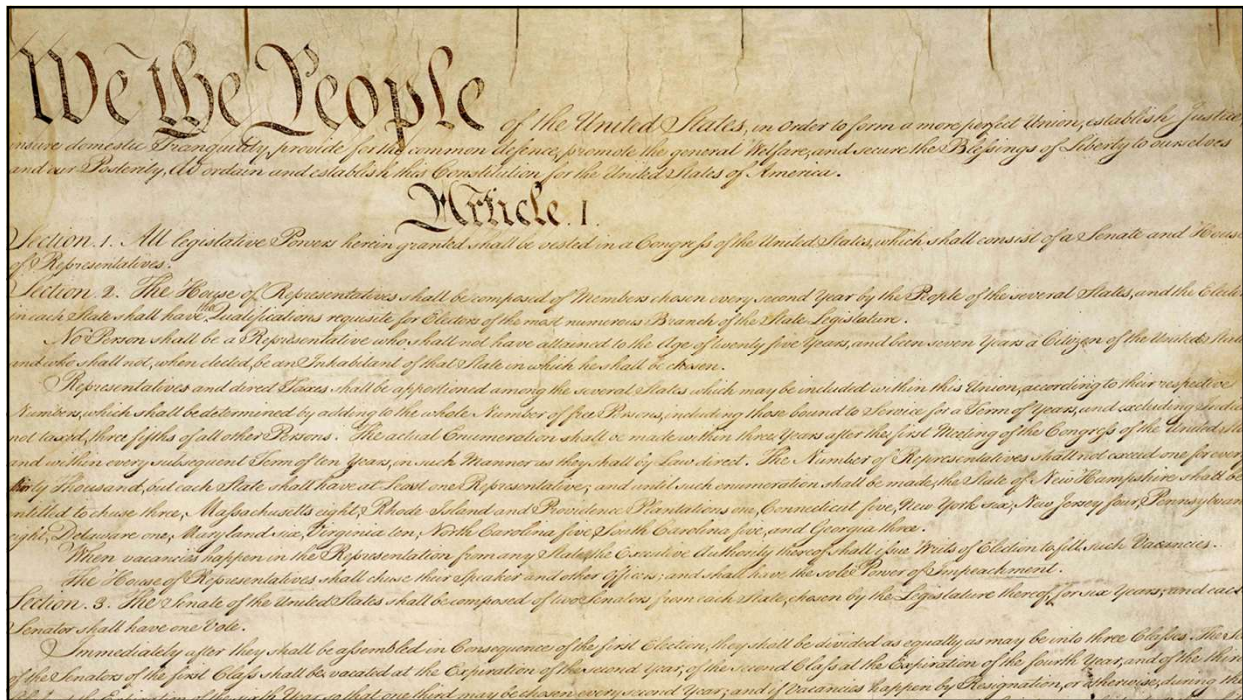 We the People of the United States, in Order to form a more perfect Union, establish Justice,
insure domestic Tranquility, provide for the common defence, promote the general Welfare, and secure the Blessings of Liberty to ourselves
and our Posterity, do ordain and establish this Constitution for the United States of America.
Article. I.
Section. 1. All legislative Powers herein granted shall be vested in a Congress of the United States, which shall consist of a Senate and House
of Representatives.
Section. 2. The House of Representatives shall be composed of Members chosen every second Year by the People of the several States, and the Elect
in each State shall have the Qualifications requisite for Electors of the most numerous Branch of the State Legislature.
No Person shall be a Representative who shall not have attained to the Age of twenty five Years, and been seven Years a Citizen of the United States
and who shall not, when elected, be an Inhabitant of that State in which he shall be chosen.
Representatives and direct Taxes shall be apportioned among the several States which may be included within this Union, according to their respective
Numbers, which shall be determined by adding to the whole Number of free Persons, including those bound to Service for a Term of Years, and excluding Indi
not taxed, three fifths of all other Persons. The actual Enumeration shall be made within three Years after the first Meeting of the Congress of the United Sta
and within every subsequent Term of ten Years, in such Manner as they shall by Law direct. The Number of Representatives shall not exceed one for every
thirty Thousand, but each State shall have at Least one Representative; and until such enumeration shall be made, the State of New Hampshire shall be
entitled to chuse three, Massachusetts eight, Rhode Island and Providence Plantations one, Connecticut five, New York six, New Jersey four, Pennsylvan
eight, Delaware one, Maryland six, Virginia ten, North Carolina five, South Carolina five, and Georgia three.
When vacancies happen in the Representation from any State, the Executive Authority thereof shall issue Writs of Election to fill such Vacancies.
The House of Representatives shall chuse their Speaker and other Officers; and shall have the sole Power of Impeachment.
Section. 3. The Senate of the United States shall be composed of two Senators from each State, chosen by the Legislature thereof, for six Years; and each
Senator shall have one Vote.
Immediately after they shall be assembled in Consequence of the first Election, they shall be divided as equally as may be into three Classes. The Se
of the Senators of the first Class shall be vacated at the Expiration of the second Year, of the second Class at the Expiration of the fourth Year, and of the third
Expiration of the sixth Year, so that one third may be chosen every second Year; and if Vacancies happen by Resignation, or otherwise, during the